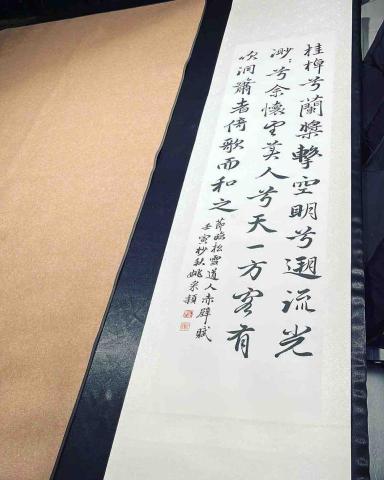 桂棹兮蘭槳擊空明兮遡流光
渺〻兮余懷望美人兮天一方客有
吹洞簫者倚歌而和之
節臨松雪道人赤壁賦
壬寅杪秋姚